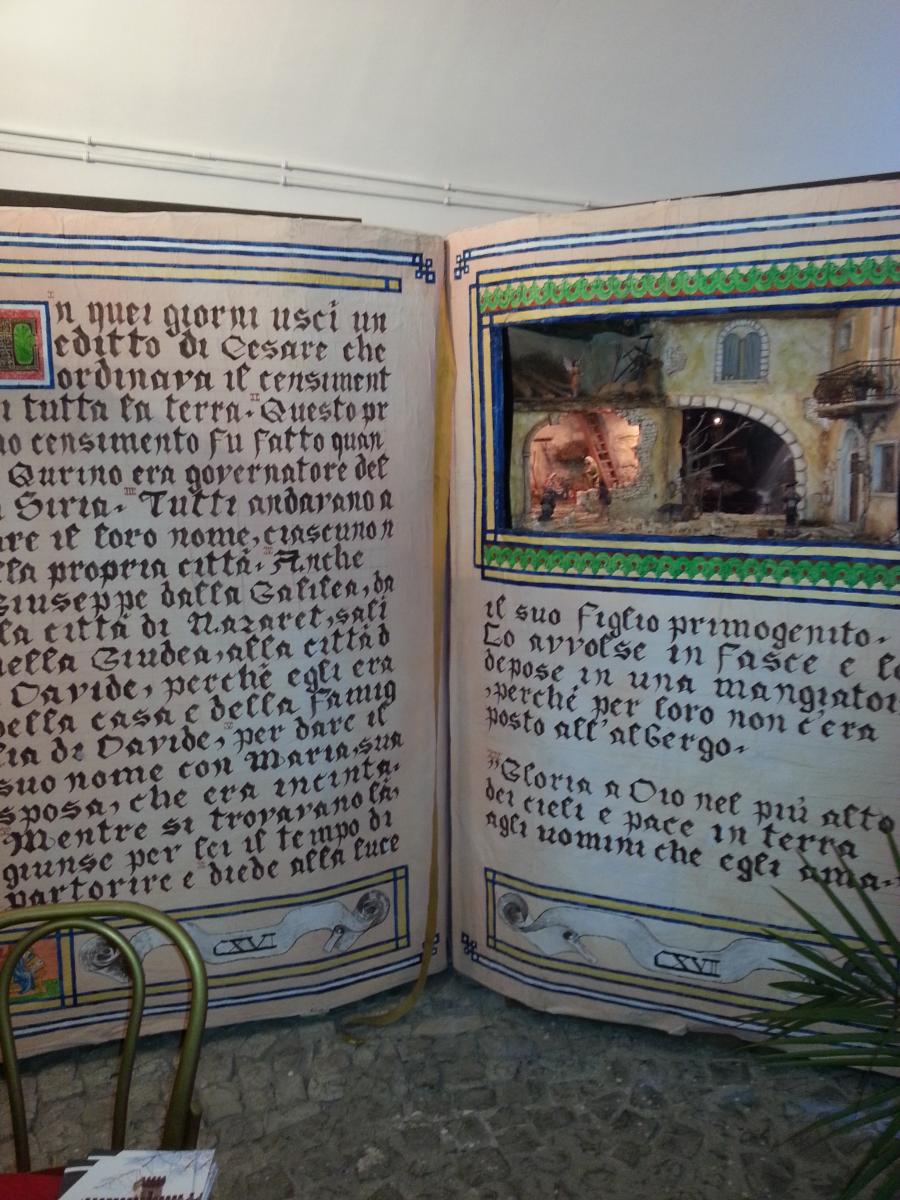 n quei giorni uscì un
editto di Cesare che
ordinava il censiment
i tutta la terra. Questo pr
mo censimento fu fatto quan
Qurino era governatore del
a Siria. Tutti andavano a
are il loro nome, ciascuno n
lla propria città. Anche
Giuseppe dalla Galilea, da
la città di Nazaret, salì
nella Giudea, alla città d
Davide, perchè egli era
della casa e della famig
lia di Davide, per dare il
suo nome con Maria, sua
sposa, che era incinta.
Mentre si trovavano là,
giunse per lei il tempo di
partorire e diede alla luce
CXVI
il suo Figlio primogenito.
Lo avvolse in fasce e lo
depose in una mangiatoi
, perchè per loro non c'era
posto all'albergo.
"Gloria a Dio nel più alto
dei cieli e pace in terra
agli uomini che egli ama.
CXVII